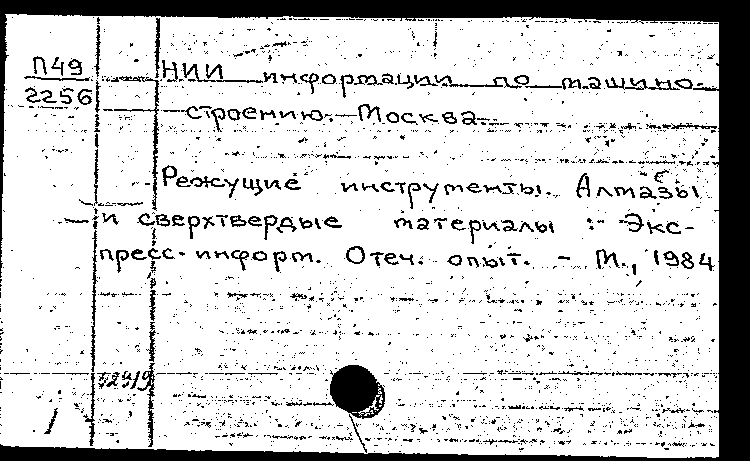 П49
2256
НИИ информации по машино-
строению. Москва.
Режущие инструменты. Алмазы
и сверхтвердые материалы :- Экс-
пресс-информ. Отеч. опыт. - М., 1984